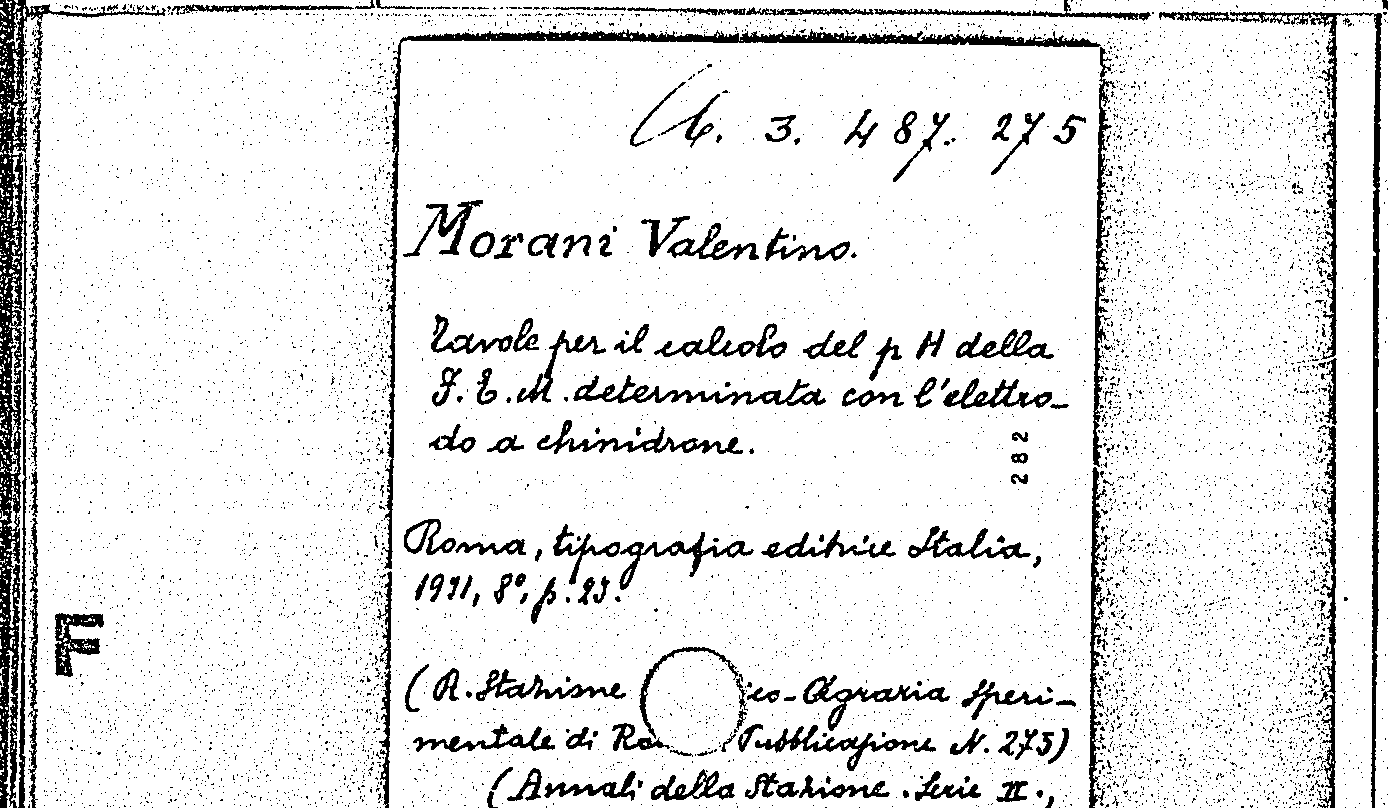 6. 3. 487. 275
Morani Valentino.
Tavole per il calcolo del p H della
F. E. M. determinata con l'elettro-
do a chinidrone.
282
Roma, tipografia editrice Italia,
8°, p. 23.
F
(R. Stazione ico-Agraria Speri-
mentale di Ro Pubblicazione N. 275)
(Annali della Stazione. Serie II.,